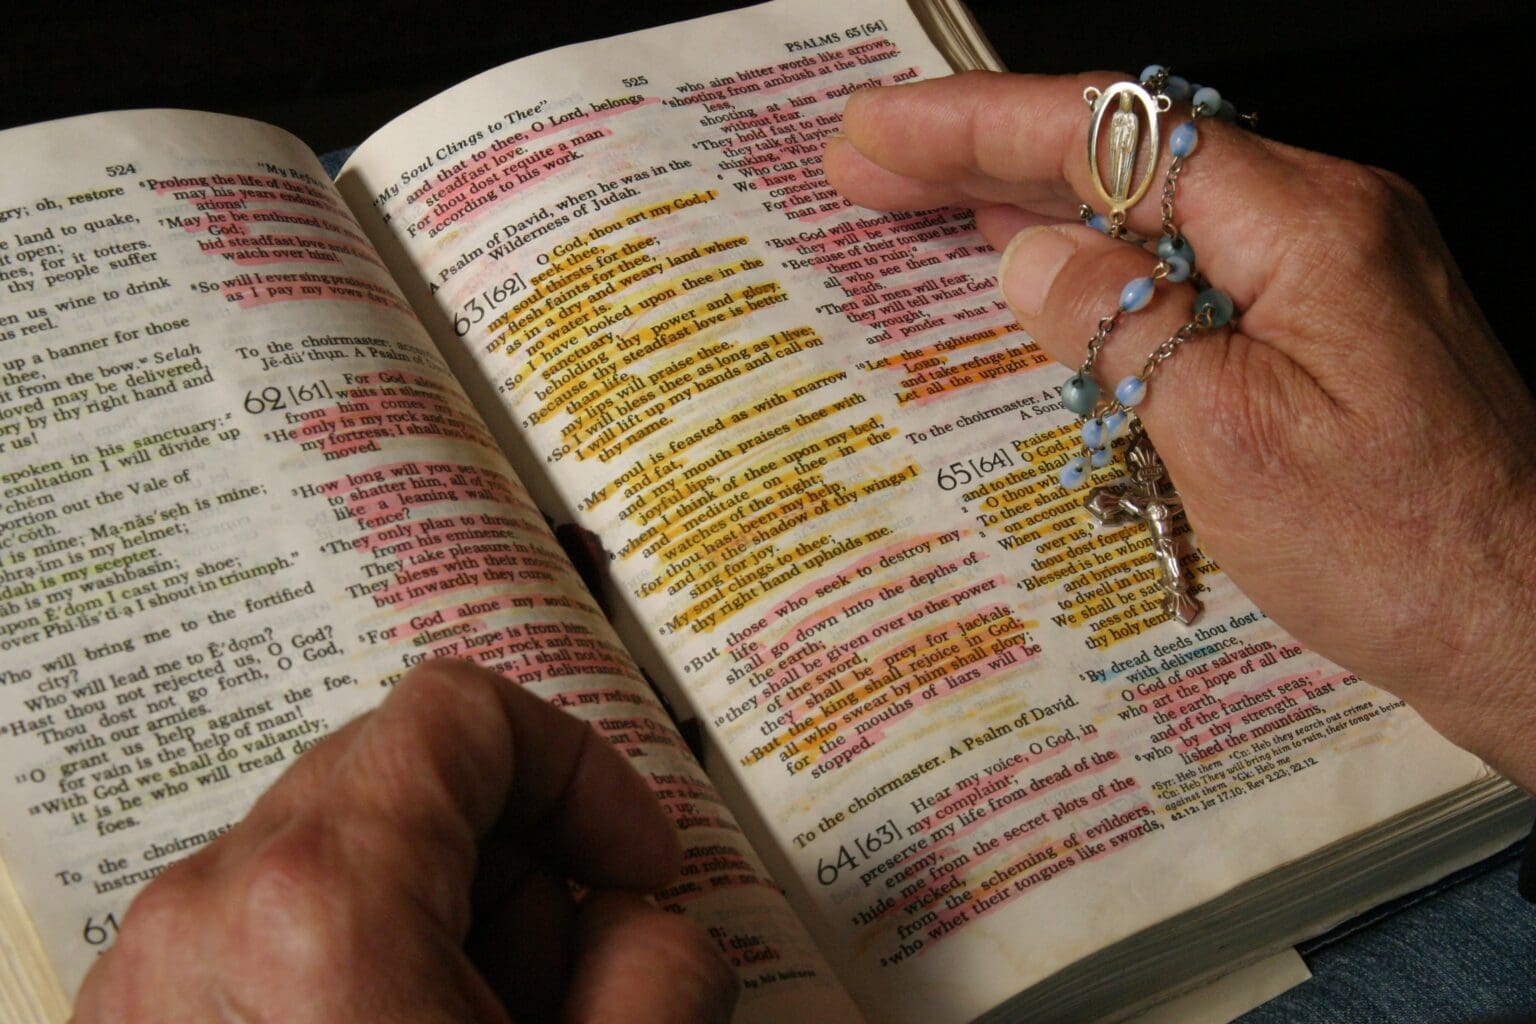 524
"My Refu
gry; oh, restore
e land to quake,
it open;
hes, for it totters.
thy people suffer
en us wine to drink
us reel.
up a banner for those
thee,
it from the bow." Selah
loved may be delivered,
ory by thy right hand and
r us!
spoken in his sanctuary:
exultation I will divide up
chém
portion out the Vale of
c'coth.
is mine; Ma·năs'seh is mine;
phra·im is my helmet;
dah is my scepter.
āb is my washbasin;
upon Ē'dom I cast my shoe;
over Phi·lis'ti·a I shout in triumph."
Who will bring me to the fortified
city?
Who will lead me to Ē'dom?
Hast thou not rejected us, O God?
Thou dost not go forth, O God,
with our armies.
11 O grant us help against the foe,
for vain is the help of man!
12 With God we shall do valiantly;
it is he who will tread down
foes.
To the choirmaste
instrum
61
6 Prolong the life of the king;
may his years endure
ations!
7 May he be enthroned for
God;
bid steadfast love and
watch over him!
8 So will I ever sing praises to
as I pay my vows day
To the choirmaster: acco
Jĕ·dū'thun. A Psalm of
62[61] For God alone
waits in silence;
from him comes my
2 He only is my rock and my
my fortress; I shall not be
moved.
3 How long will you set upon
to shatter him, all of you
like a leaning wall,
fence?
4 They only plan to thrust
from his eminence.
They take pleasure in false
They bless with their mouths
but inwardly they curse.
5 For God alone my soul
silence,
for my hope is from him.
is my rock and my
ress; I shall not be
my deliverance
ck, my refuge
times, O
but a
extortion,
on robbery
ease, set not
this:
o God;
by his holiness
525
"My Soul Clings to Thee"
12 and that to thee, O Lord, belongs
steadfast love.
For thou dost requite a man
according to his work.
A Psalm of David, when he was in the
Wilderness of Judah.
63[62] O God, thou art my God, I
seek thee,
my soul thirsts for thee;
my flesh faints for thee,
as in a dry and weary land where
no water is.
2 So I have looked upon thee in the
sanctuary,
beholding thy power and glory.
3 Because thy steadfast love is better
than life,
my lips will praise thee.
4 So I will bless thee as long as I live;
I will lift up my hands and call on
thy name.
5 My soul is feasted as with marrow
and fat,
and my mouth praises thee with
joyful lips,
6 when I think of thee upon my bed,
and meditate on thee in the
watches of the night;
7 for thou hast been my help,
and in the shadow of thy wings I
sing for joy.
8 My soul clings to thee;
thy right hand upholds me.
9 But those who seek to destroy my
life
shall go down into the depths of
the earth;
10 they shall be given over to the power
of the sword,
they shall be prey for jackals.
11 But the king shall rejoice in God;
all who swear by him shall glory;
for the mouths of liars will be
stopped.
To the choirmaster. A Psalm of David.
64[63] Hear my voice, O God, in
my complaint;
preserve my life from dread of the
enemy,
2 hide me from the secret plots of the
wicked,
from the scheming of evildoers,
3 who whet their tongues like swords,
PSALMS 65[64]
who aim bitter words like arrows,
4 shooting from ambush at the blame-
less,
shooting at him suddenly and
without fear.
5 They hold fast to their
they talk of laying
thinking, "Who
6 Who can sear
We have tho
conceived
For the inw
man are d
7 But God will shoot his arrow
they will be wounded sud
8 Because of their tongue he wi
them to ruin;
all who see them will wa
heads.
9 Then all men will fear;
they will tell what God
wrought,
and ponder what he
10 Let the righteous re
LORD,
and take refuge in hi
Let all the upright in
To the choirmaster. A P
A Song
65[64] Praise is d
O God, in
and to thee shall vo
2 O thou who
To thee shall all flesh
3 on account
When our
over us,
thou dost forgive
4 Blessed is he whom
and bring nea
to dwell in thy
We shall be sat
ness of thy
thy holy temp
5 By dread deeds thou dost
with deliverance,
O God of our salvation,
who art the hope of all the
the earth,
and of the farthest seas;
6 who by thy strength hast es
lished the mountains,
Syr: Heb them Cn: Heb they search out crimes
Cn: Heb They will bring him to ruin, their tongue being
against them Gk: Heb me
62.12: Jer 17.10; Rev 2.23; 22.12.